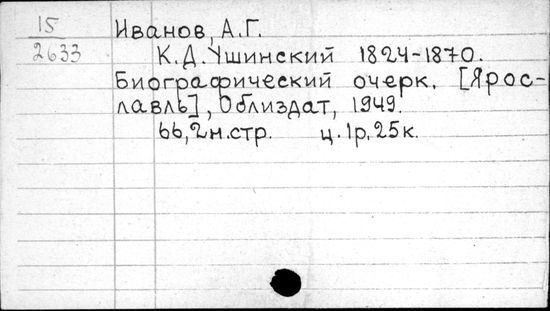 15 Иванов, А.Г.
2633 К.Д.Ушинский 1824-1870.
Биографический очерк. [Ярос-
лавль], Облиздат, 1949.
66, 2н.стр. ц. 1р. 25к.